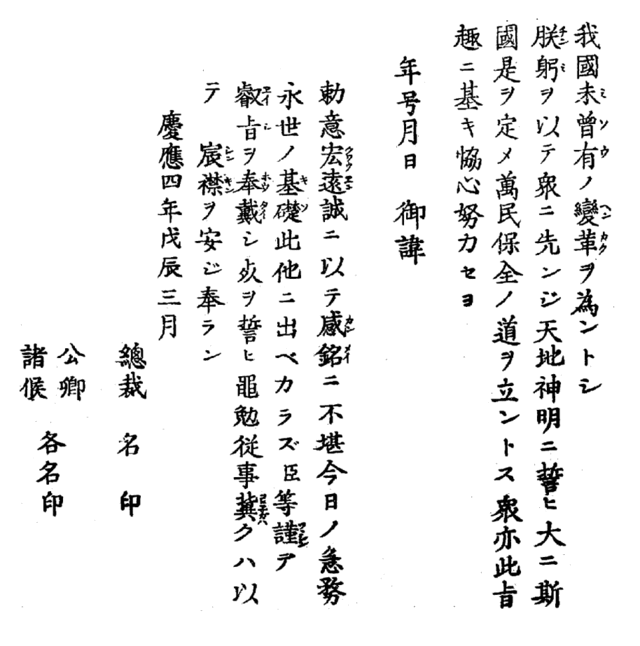 我國未曾有ノ變革ヲ為ントシ
朕躬ヲ以テ衆ニ先ンジ天地神明ニ誓ヒ大ニ斯
國是ヲ定メ萬民保全ノ道ヲ立ントス衆亦此旨
趣ニ基キ協心努力セヨ
年号月日 御諱
勅意宏遠誠ニ以テ感銘ニ不堪今日ノ急務
永世ノ基礎此他ニ出ベカラズ臣等謹テ
叡旨ヲ奉戴シ死ヲ誓ヒ黽勉従事冀クハ以
テ 宸襟ヲ安ジ奉ラン
慶應四年戊辰三月
總裁 名 印
公卿
諸侯
各名印